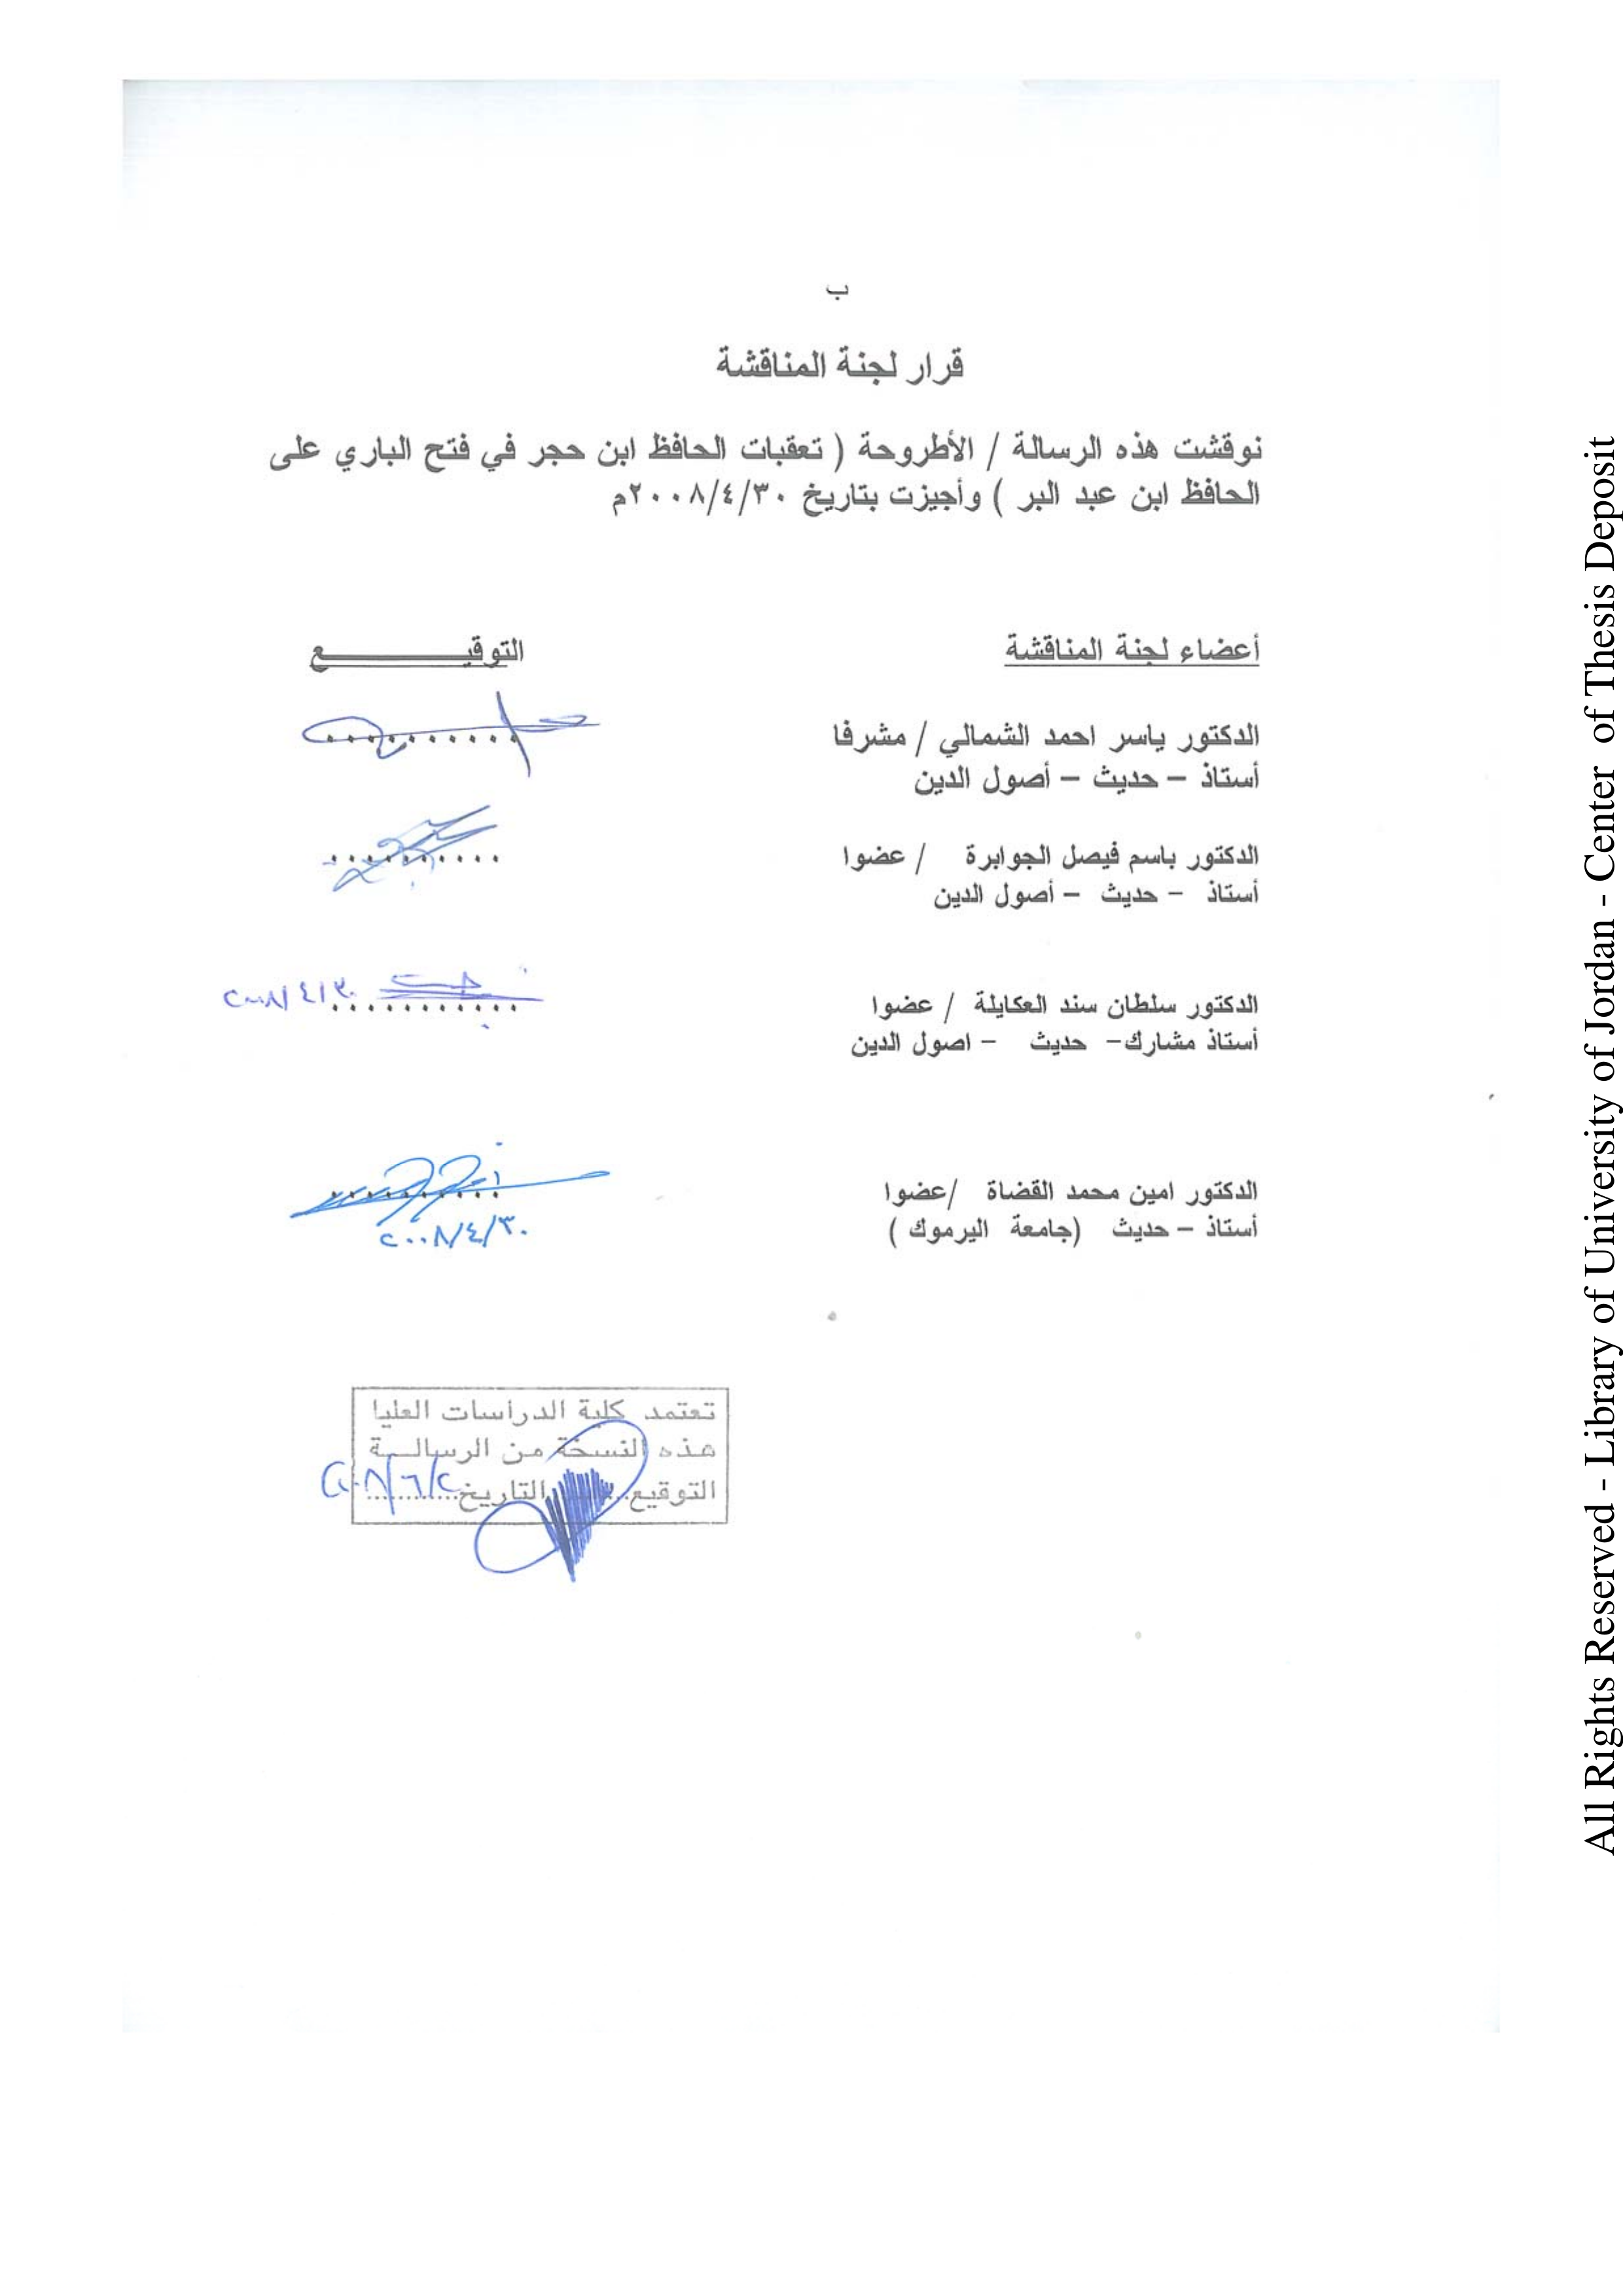 ب
قرار لجنة المناقشة
نوقشت هذه الرسالة / الأطروحة ( تعقبات الحافظ ابن حجر في فتح الباري على
الحافظ ابن عبد البر ) وأجيزت بتاريخ ٢٠٠٨/٤/٣٠م
أعضاء لجنة المناقشة
التوقيـــــــــــــع
الدكتور ياسر احمد الشمالي / مشرفا
أستاذ – حديث – أصول الدين
الدكتور باسم فيصل الجوابرة / عضوا
أستاذ – حديث – أصول الدين
الدكتور سلطان سند العكايلة / عضوا
٢٠٠٨/٤/٣٠
أستاذ مشارك– حديث – اصول الدين
الدكتور امين محمد القضاة /عضوا
أستاذ – حديث (جامعة اليرموك )
٢٠٠٨/٤/٣٠
تعتمد كلية الدراسات العليا
هذه النسخة من الرسالــة
التوقيع.......التاريخ............
All Rights Reserved - Library of University of Jordan - Center of Thesis Deposit